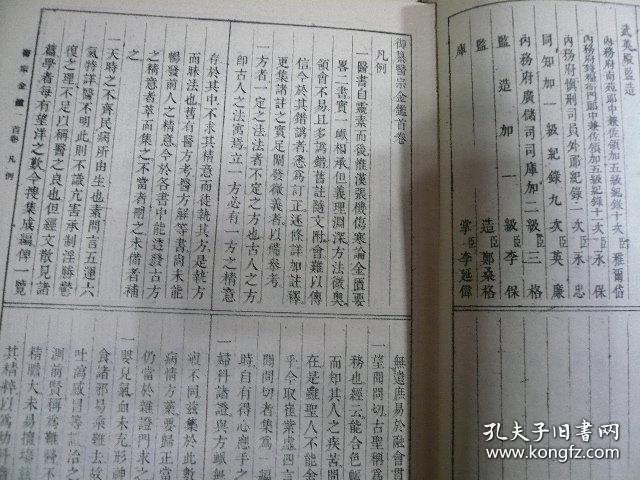 武英殿監造
內務府南苑郎中兼佐領加五級紀錄十一次臣雅爾岱
內務府錢糧衙門郎中兼佐領加五級紀錄十次臣永保
內務府慎刑司員外郎紀錄二次臣永忠
同知加一級紀錄九次臣英廉
內務府廣儲司司庫加二級臣三格
監造加一級臣李保
監造臣鄭桑格
庫掌臣李延偉
御纂醫宗金鑑首卷
凡例
一醫書自靈素而後惟漢張機傷寒論金匱要
畧二書實一㽮相承但義理淵深方法微奧
領會不易且多譌錯舊註隨文附會難以傳
信今於其錯譌者悉為訂正逐條詳加註釋
更集諸註之實足闡發微義者以備參考
一方者一定之法法者不定之方也古人之方
即古人之法寓焉立一方必有一方之精意
存於其中不求其精意而徒執其方是執方
而昧法也舊有醫方考醫方解等書尚未能
暢發前人之精意今於各書中能透發古方
之精意者萃而集之不當者刪之未備者補
之
一天時之不齊民病所由生也素問言五運六
氣特詳醫不明此則不識亢害承制淫勝鬱
復之理不足以稱醫之良也但經文散見諸
篇學者每有望洋之歎今搜集成編俾一覽
醫宗金鑑 首卷 凡例 一
無遺庶易於融會貫
一望聞問切古聖稱為
務也經云能合色脈
而知其人之疾苦聞
在是雖聖人不能舍
乎今取崔紫虛四言
聞問切者集為一編
時自有得心應手之
一婦科諸證與方㽮無
㽮不同玆集於此數
病情方藥要歸正當
仍當於雜證門求之
一嬰兒氣血未充形神
食諸邪易乘難去故
吐瀉感冒等證治之
測前賢稱為難醫不
精膽大未易擅場
其精粹以為幼科
孔夫子旧书网
www.kongfz.com